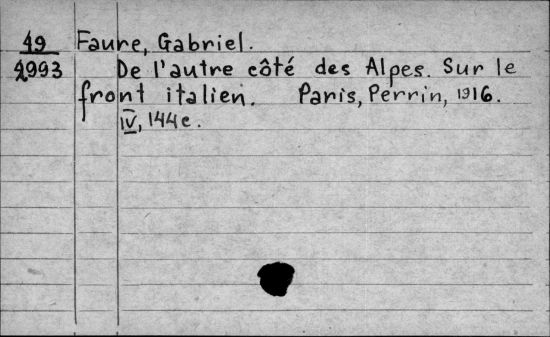 49 Faure, Gabriel.
2993 De l'autre côté des Alpes. Sur le
front italien. Paris, Perrin, 1916.
IV, 144 c.